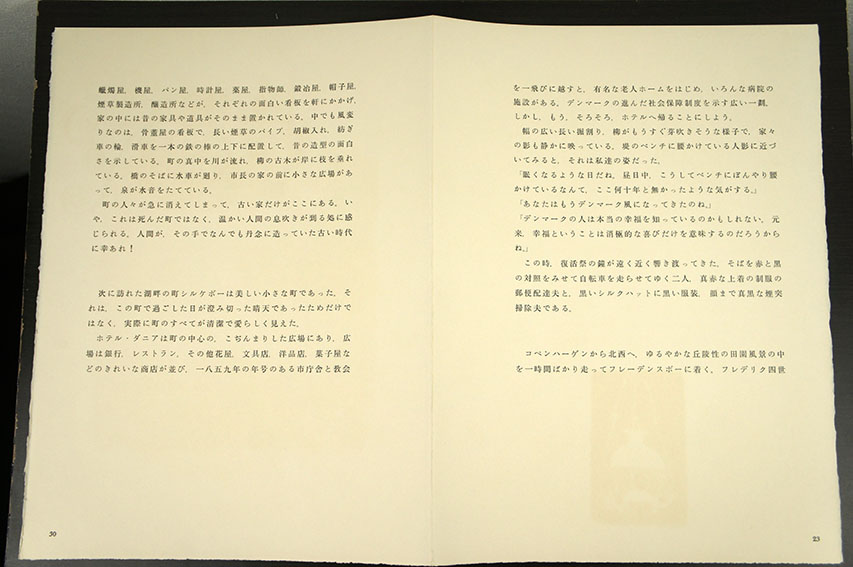 蠟燭屋，機屋，パン屋，時計屋，薬屋，指物師，鍛冶屋，帽子屋，
煙草製造所，醸造所などが，それぞれの面白い看板を軒にかかげ，
家の中には昔の家具や道具がそのまま置かれている。中でも風変
りなのは，骨董屋の看板で，長い煙草のパイプ，胡椒入れ，紡ぎ
車の輪，滑車を一本の鉄の棒の上下に配置して，昔の造型の面白
さを示している。町の真中を川が流れ，柳の古木が岸に枝を垂れ
ている。橋のそばに水車が廻り，市長の家の前に小さな広場があ
って，泉が水音をたてている。
町の人々が急に消えてしまって，古い家だけがここにある。い
や，これは死んだ町ではなく，温かい人間の息吹きが到る処に感
じられる。人間が，その手でなんでも丹念に造っていた古い時代
に幸あれ！
次に訪れた湖畔の町シルケボーは美しい小さな町であった。そ
れは，この町で過ごした日が澄み切った晴天であったためだけで
はなく，実際に町のすべてが清潔で愛らしく見えた。
ホテル・ダニアは町の中心の，こぢんまりした広場にあり，広
場は銀行，レストラン，その他花屋，文具店，洋品店，菓子屋な
どのきれいな商店が並び，一八五九年の年号のある市庁舎と教会
30
を一飛びに越すと，有名な老人ホームをはじめ，いろんな病院の
施設がある。デンマークの進んだ社会保障制度を示す広い一劃。
しかし，もう，そろそろ，ホテルへ帰ることにしよう。
幅の広い長い掘割り，柳がもうすぐ芽吹きそうな様子で，家々
の影も静かに映っている。堤のベンチに腰かけている人影に近づ
いてみると，それは私達の姿だった。
「眠くなるような日だね。昼日中，こうしてベンチにぼんやり腰
かけているなんて，ここ何十年と無かったような気がする。」
「あなたはもうデンマーク風になってきたのね。」
「デンマークの人は本当の幸福を知っているのかもしれない。元
来，幸福ということは消極的な喜びだけを意味するのだろうから
ね。」
この時，復活祭の鐘が遠く近く響き渡ってきた。そばを赤と黒
の対照をみせて自転車を走らせてゆく二人，真赤な上着の制服の
郵便配達夫と，黒いシルクハットに黒い服装，顔まで真黒な煙突
掃除夫である。
コペンハーゲンから北西へ，ゆるやかな丘陵性の田園風景の中
を一時間ばかり走ってフレーデンスボーに着く。フレデリク四世
23